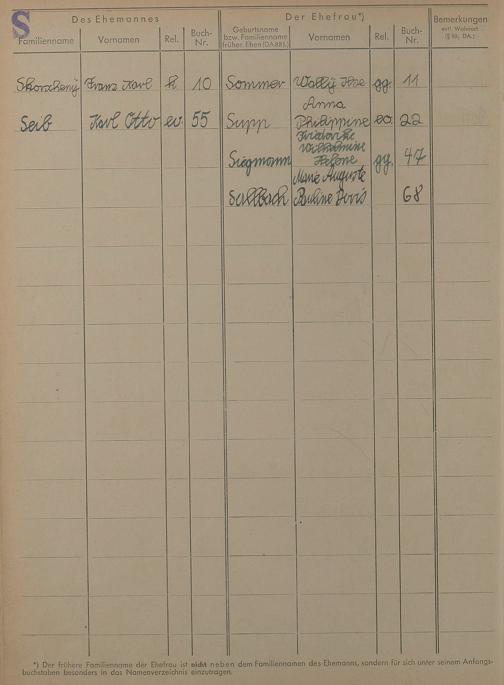 S
Des Ehemannes
Der Ehefrau*)
Bemerkungen
evtl. Wohnort
Familienname
Vornamen
Rel.
Buch-
Nr.
Geburtsname
bzw. Familienname
früher. Ehen (DA 881.)
Vornamen
Rel.
Buch-
Nr.
Franz Karl k 10 Sommer Wally Ilse gg. 11
Seib Karl Otto ev. 55 Supp Anna
Philippine ev. 22
Siegmann Friederike
Wilhelmine
Helene gg. 47
Marie Auguste
Pauline Doris 68
*) Der frühere Familienname der Ehefrau ist nicht neben dem Familiennamen des Ehemanns, sondern für sich unter seinem Anfangs-
buchstaben besonders in das Namenverzeichnis einzutragen.